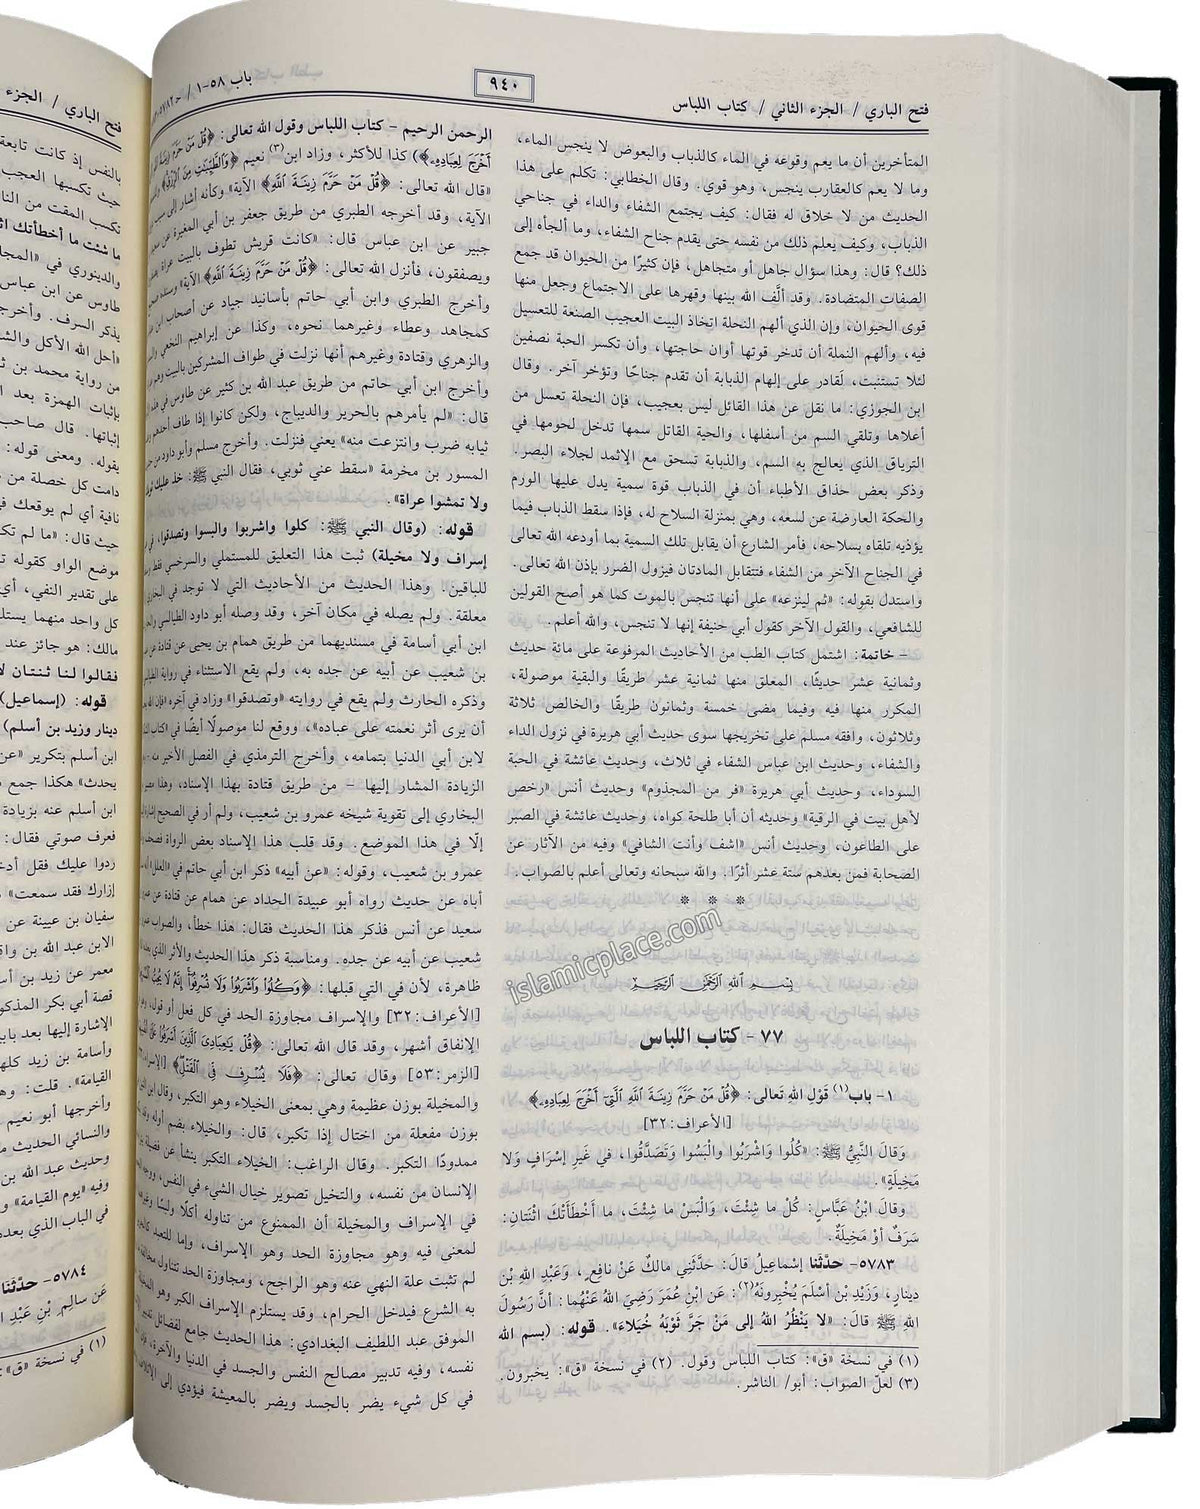 فتح الباري / الجزء الثاني / كتاب اللباس
٩٤٠
باب ٥٨-١ / ح
المتأخرين أن ما يعم وقوعه في الماء كالذباب والبعوض لا ينجس الماء،
وما لا يعم كالعقارب ينجس، وهو قوي. وقال الخطابي: تكلم على هذا
الحديث من لا خلاق له فقال: كيف يجتمع الشفاء والداء في جناحي
الذباب، وكيف يعلم ذلك من نفسه حتى يقدم جناح الشفاء، وما ألجأه إلى
ذلك؟ قال: وهذا سؤال جاهل أو متجاهل، فإن كثيرًا من الحيوان قد جمع
الصفات المتضادة. وقد ألَّف الله بينها وقهرها على الاجتماع وجعل منها
قوى الحيوان، وإن الذي ألهم النحلة اتخاذ البيت العجيب الصنعة للتعسيل
فيه، وألهم النملة أن تدخر قوتها أوان حاجتها، وأن تكسر الحبة نصفين
لئلا تستنبت، لَقادر على إلهام الذبابة أن تقدم جناحًا وتؤخر آخر. وقال
ابن الجوزي: ما نقل عن هذا القائل ليس بعجيب، فإن النحلة تعسل من
أعلاها وتلقي السم من أسفلها، والحية القاتل سمها تدخل لحومها في
الترياق الذي يعالج به السم، والذبابة تسحق مع الإثمد لجلاء البصر.
وذكر بعض حذاق الأطباء أن في الذباب قوة سمية يدل عليها الورم
والحكة العارضة عن لسعه، وهي بمنزلة السلاح له، فإذا سقط الذباب فيما
يؤذيه تلقاه بسلاحه، فأمر الشارع أن يقابل تلك السمية بما أودعه الله تعالى
في الجناح الآخر من الشفاء فتتقابل المادتان فيزول الضرر بإذن الله تعالى.
واستدل بقوله: «ثم لينزعه» على أنها تنجس بالموت كما هو أصح القولين
للشافعي، والقول الآخر كقول أبي حنيفة إنها لا تنجس، والله أعلم.
– خاتمة: اشتمل كتاب الطب من الأحاديث المرفوعة على مائة حديث
وثمانية عشر حديثًا، المعلق منها ثمانية عشر طريقًا والبقية موصولة،
المكرر منها فيه وفيما مضى خمسة وثمانون طريقًا والخالص ثلاثة
وثلاثون، وافقه مسلم على تخريجها سوى حديث أبي هريرة في نزول الداء
والشفاء، وحديث ابن عباس الشفاء في ثلاث، وحديث عائشة في الحبة
السوداء، وحديث أبي هريرة «فر من المجذوم» وحديث أنس «رخص
لأهل بيت في الرقية» وحديثه أن أبا طلحة كواه، وحديث عائشة في الصبر
على الطاعون، وحديث أنس «اشف وأنت الشافي» وفيه من الآثار عن
الصحابة فمن بعدهم ستة عشر أثرًا. والله سبحانه وتعالى أعلم بالصواب.
* * *
islamicplace.com
بِسْمِ اللهِ الرَّحْمٰنِ الرَّحِيمِ
٧٧ - كتاب اللباس
١- باب(١) قَوْلِ اللهِ تَعالى: ﴿قُلْ مَنْ حَرَّمَ زِينَةَ اللَّهِ الَّتِيَ أَخْرَجَ لِعِبَادِهِ﴾
[الأعراف:٣٢]
وَقالَ النَّبِيُّ ﷺ: «كُلُوا وَاشْرَبُوا وَالْبَسُوا وَتَصَدَّقُوا، في غَيرِ إسْرَافٍ وَلا
مَخِيلَةٍ».
وَقالَ ابْنُ عَبَّاسٍ: كُلْ ما شِئْتَ، وَالْبَسْ ما شِئْتَ، ما أَخْطَأَتْكَ اثْنَتَانِ:
سَرَفٌ أوْ مَخِيلَةٌ.
٥٧٨٣- حدَّثَنا إسْماعِيلُ قالَ: حَدَّثَنِي مالكٌ عَنْ نافِعٍ، وَعَبْدِ اللهِ بْنِ
دِينارٍ، وَزَيْدِ بْنِ أسْلَمَ يُخْبِرُونَهُ(٢): عَنِ ابْنِ عُمَرَ رَضِيَ اللهُ عَنْهُما: أنَّ رَسُولَ
اللهِ ﷺ قالَ: «لا يَنْظُرُ اللهُ إلى مَنْ جَرَّ ثَوْبَهُ خُيَلاءَ». قوله: (بسم الله
(١) في نسخة «ق»: كتاب اللباس وقول. (٢) في نسخة «ق»: يخبرون.
(٣) لعلّ الصواب: أبو/ الناشر.
الرحمن الرحيم – كتاب اللباس وقول الله تعالى: ﴿قُلْ مَنْ حَرَّمَ زِينَةَ
أَخْرَجَ لِعِبَادِهِ﴾) كذا للأكثر، وزاد ابن(٣) نعيم ﴿وَالطَّيِّبَاتِ مِنَ الرِّزْقِ﴾
«قال الله تعالى: ﴿قُلْ مَنْ حَرَّمَ زِينَةَ اللَّهِ﴾ الآية» وكأنه أشار إلى سبب
الآية، وقد أخرجه الطبري من طريق جعفر بن أبي المغيرة عن
جبير عن ابن عباس قال: «كانت قريش تطوف بالبيت عراة
ويصفقون، فأنزل الله تعالى: ﴿قُلْ مَنْ حَرَّمَ زِينَةَ اللَّهِ﴾ الآية» وسنده
وأخرج الطبري وابن أبي حاتم بأسانيد جياد عن أصحاب ابن
كمجاهد وعطاء وغيرهما نحوه، وكذا عن إبراهيم النخعي
والزهري وقتادة وغيرهم أنها نزلت في طواف المشركين بالبيت وهم
وأخرج ابن أبي حاتم من طريق عبد الله بن كثير عن طاوس في هذه
قال: «لم يأمرهم بالحرير والديباج، ولكن كانوا إذا طاف أحدهم
ثيابه ضرب وانتزعت منه» يعني فنزلت. وأخرج مسلم وأبو داود من
المسور بن مخرمة «سقط عني ثوبي، فقال النبي ﷺ: خذ عليك
ولا تمشوا عراة».
قوله: (وقال النبي ﷺ: كلوا واشربوا والبسوا وتصدقوا، في
إسراف ولا مخيلة) ثبت هذا التعليق للمستملي والسرخسي فقط
للباقين. وهذا الحديث من الأحاديث التي لا توجد في البخاري
معلقة. ولم يصله في مكان آخر، وقد وصله أبو داود الطيالسي
ابن أبي أسامة في مسنديهما من طريق همام بن يحيى عن قتادة عن
بن شعيب عن أبيه عن جده به، ولم يقع الاستثناء في رواية
وذكره الحارث ولم يقع في روايته «وتصدقوا» وزاد في آخره «فإن الله
أن يرى أثر نعمته على عباده»، ووقع لنا موصولًا أيضًا في «كتاب
لابن أبي الدنيا بتمامه، وأخرج الترمذي في الفصل الأخير منه -
الزيادة المشار إليها – من طريق قتادة بهذا الإسناد، وهذا
البخاري إلى تقوية شيخه عمرو بن شعيب، ولم أر في الصحيح إشارة
إلّا في هذا الموضع. وقد قلب هذا الإسناد بعض الرواة فصحف
عمرو بن شعيب، وقوله: «عن أبيه» ذكر ابن أبي حاتم في «العلل»
أباه عن حديث رواه أبو عبيدة الحداد عن همام عن قتادة عن
سعيد عن أنس فذكر هذا الحديث فقال: هذا خطأ، والصواب
شعيب عن أبيه عن جده. ومناسبة ذكر هذا الحديث والأثر الذي بعده
ظاهرة، لأن في التي قبلها: ﴿وَكُلُوا وَاشْرَبُوا وَلَا تُسْرِفُوا إِنَّهُ لَا يُحِبُّ
[الأعراف:٣٢] والإسراف مجاوزة الحد في كل فعل أو قول، وهو
الإنفاق أشهر، وقد قال الله تعالى: ﴿قُلْ يَاعِبَادِيَ الَّذِينَ أَسْرَفُوا عَلَى
[الزمر:٥٣] وقال تعالى: ﴿فَلَا يُسْرِف فِّي الْقَتْلِ﴾ [الإسراء:
والمخيلة بوزن عظيمة وهي بمعنى الخيلاء وهو التكبر، وقال ابن
بوزن مفعلة من اختال إذا تكبر، قال: والخيلاء بضم أوله وقد
ممدودًا التكبر. وقال الراغب: الخيلاء التكبر ينشأ عن فضيلة
الإنسان من نفسه، والتخيل تصوير خيال الشيء في النفس، ووجه
في الإسراف والمخيلة أن الممنوع من تناوله أكلًا ولبسًا
لمعنى فيه وهو مجاوزة الحد وهو الإسراف، وإما للتعبد
لم تثبت علة النهي عنه وهو الراجح، ومجاوزة الحد تتناول
به الشرع فيدخل الحرام، وقد يستلزم الإسراف الكبر وهو
الموفق عبد اللطيف البغدادي: هذا الحديث جامع لفضائل
نفسه، وفيه تدبير مصالح النفس والجسد في الدنيا والآخرة،
في كل شيء يضر بالجسد ويضر بالمعيشة فيؤدي إلى
فتح الباري / الجزء
بالنفس إذ كانت تابعة
حيث تكسبها العجب
تكسب المقت من النا
ما شئت ما أخطأتك
والدينوري في «المجا
طاوس عن ابن عباس
يذكر السرف. وأخرج
«أحل الله الأكل والش
من رواية محمد بن
بإثبات الهمزة بعد
إثباتها. قال صاحب
بقوله. ومعنى قوله:
دامت كل خصلة من
نافية أي لم يوقعك في
حيث قال: «ما لم تك
موضع الواو كقوله
على تقدير النفي، أي
كل واحد منهما يستل
مالك: هو جائز عند
فقالوا لنا ثنتان لا
قوله: (إسماعيل)
دينار وزيد بن أسلم)
ابن أسلم بتكرير «عن
يحدث» هكذا جمع
ابن أسلم عنه بزيادة
فعرف صوتي فقال:
ردوا عليك فقل أدخ
إزارك فقد سمعت»
سفيان بن عيينة عن
الابن عبد الله بن واق
معمر عن زيد بن أسل
قصة أبي بكر المذكو
الإشارة إليها بعد باب
وأسامة بن زيد كله
القيامة». قلت: وه
وأخرجها أبو نعيم
والنسائي الحديث
وحديث عبد الله بن
وفيه «يوم القيامة»
في الباب الذي بعد
٥٧٨٤- حدَّثنا
عَن سالِمِ بْنِ عَبْدِ
(١) في نسخة «ق»: